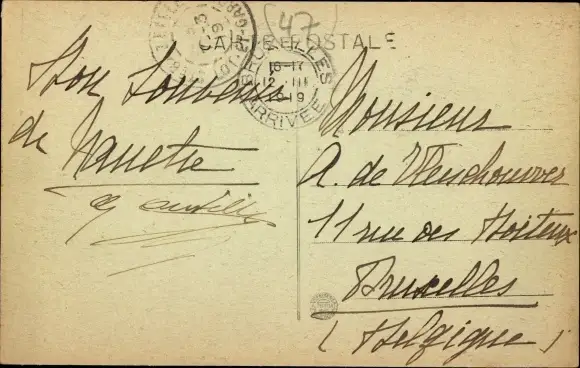 47
CARTE POSTALE
BRUXELLES
16-17
12 III
1919
ARRIVÉE
Bon Souvenir
de Nanette
Monsieur
A. de
11 rue des Boiteux
Bruxelles
(Belgique)